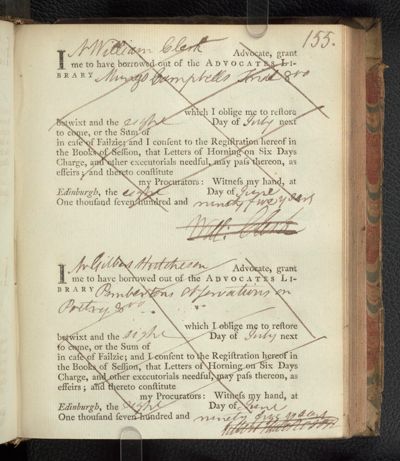 155.
I Mr William Clerk Advocate, grant
me to have borrowed out of the ADVOCATES LI-
BRARY Mungo Campbells 8vo
which I oblige me to restore
betwixt and the eight Day of July next
to come, or the Sum of
in case of Failzie; and I consent to the Registration hereof in
the Books of Session, that Letters of Horning on Six Days
Charge, and other executorials needful, may pass thereon, as
effeirs; and thereto constitute
my Procurators: Witness my hand, at
Edinburgh, the eight Day of June
One thousand seven hundred and ninety five years
Will: Clerk
I Mr Gilbert Hutcheson Advocate, grant
me to have borrowed out of the ADVOCATES LI-
BRARY Pembertons observations on
Poetry 8vo
which I oblige me to restore
betwixt and the eight Day of July next
to come, or the Sum of
in case of Failzie; and I consent to the Registration hereof in
the Books of Session, that Letters of Horning on Six Days
Charge, and other executorials needful, may pass thereon, as
effeirs; and thereto constitute
my Procurators: Witness my hand, at
Edinburgh, the eight Day of June
One thousand seven hundred and ninety five years